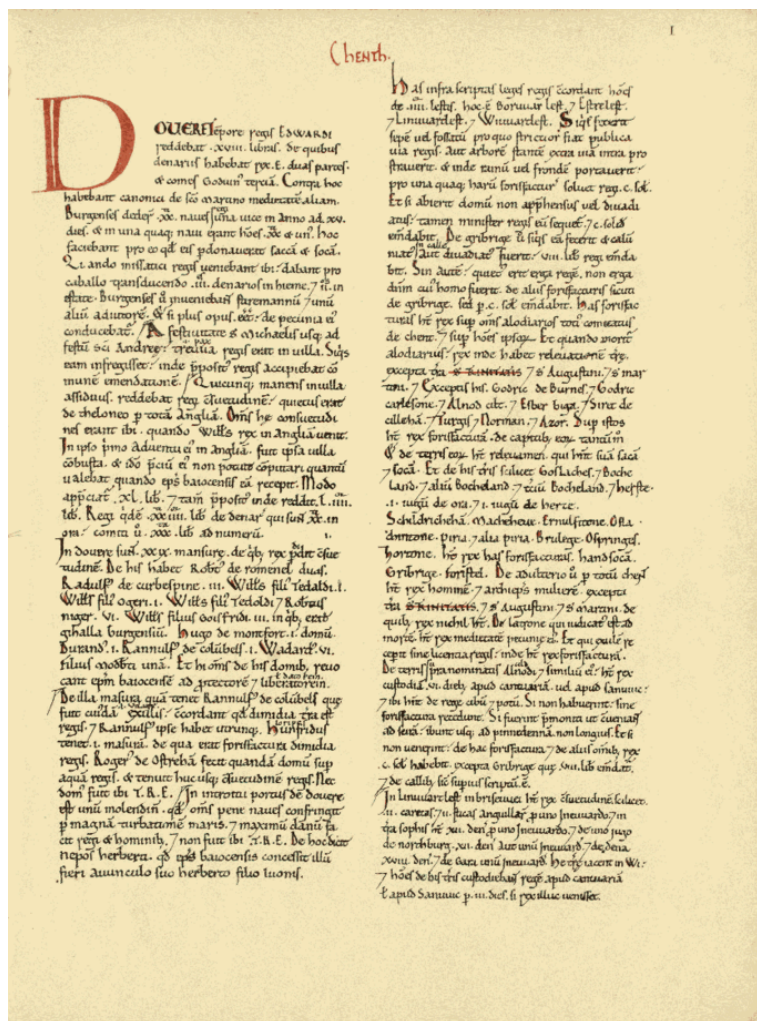 I
Chenth.
DOVERE tēpore regis EDWARDI
reddebat .xviii. libras. de quibus
denariis habebat rex .E. duas partes.
& comes Goduin' terciā. Contra hoc
habebant canonici de sc̄o Martino medietatē aliam.
Burgenses deder' .xx. naues regi una uice in anno ad .xv.
dies. & in una quaq; naui erant hōes .xx. & un'. hoc
faciebant pro eo qd̄ eis pdonauerat saccā & socā.
Quando missatici regis ueniebant ibi: dabant pro
caballo transducendo .iii. denarios in hieme. 7 .ii. in
estate. Burgenses u' inueniebant stiremannū 7 unū
aliū adiutorē. & si plus opus eēt: de pecunia ei'
conducebat'. A festiuitate S' Michaelis usq; ad
festū sc̄i Andree: treuua regis erat in uilla. Siq's
eam infregisset: inde pposit' regis accipiebat cō
munē emendationē. Quicunq; manens in uilla
assiduus. reddebat regi c̄suetudinē: quietus erat
de theloneo p totā Angliā. Om̄s he consuetudi
nes erant ibi. quando Will's rex in Angliā uenit.
In ipso p̄mo aduentu ei' in angliā. fuit ipsa uilla
cōbusta. & ido p̄ciū ei' non potuit cōputari quantū
ualebat quando ep̄s baiocensis eā recepit. Modo
app̄ciat' .xl. lib'. 7 tam̄ pposit' inde reddit .l.iiii.
lib'. Regi q̄dē .xxiiii. lib' de denar' qui sun' .xx. in
ora. comiti u' .xxx. lib' ad numerū.
In Douere sun' .xxix. mansurę. de q'b' rex pdit c̄sue
tudinē. De his habet Robt' de romenel duas.
Radulf' de curbespine .iii. Will's fili' Tedaldi .i.
Will's fili' ogeri .i. Will's fili' tedoldi 7 Robtus
niger .vi. Will's filius Goisfridi .iii. in q'b' erat
gihalla burgensiū. hugo de montfort .i. domū.
Durand' .i. Rannulf' de colūbels .i. Wadard' .vi.
filius modbti unā. Et hi om̄s de his domib' reuo
cant ep̄m baiocensē ad ptectorē 7 liberatorē
De illa masura quā tenet Rannulf' de colūbels quę
fuit cuidā exulis: c̄cordant qd̄ dimidia tra est
regis. 7 Rannulf' ipse habet utrunq;. hunfridus
tenet .i. masurā. de qua erat forisfactura dimidia
regis. Roger' de ostrehā fecit quandā domū sup
aquā regis. & tenuit huc usq; c̄suetudinē regis. Nec
dom' fuit ibi T.R.E. In introitu port' de douere
est unū molendin'. qd̄ om̄s pene naues confringit
p magnā turbationē maris. 7 maximū dānū fa
cit regi & hominib'. 7 non fuit ibi T.R.E. De hoc dicit
nepos herberti. qd̄ ep̄s baiocensis concessit illū
fieri auunculo suo herberto filio Iuonis.
has infra scriptas leges regis c̄cordant hōes
de .iiii. lestis. hoc .ē. Boruuar lest. 7 Estrelest.
7 Linuuartlest. 7 Wiuuartlest. Siq's fecerit
sepē uel fossatū pro quo strictior fiat publica
uia regis. aut arborē stantē extra uiā intra pro
strauerit. & inde ramū uel frondē portauerit:
pro una quaq; harū forisfactur' soluet regi .c. sol'.
Et si abierit domū non app̄hensus uel diuadi
atus: tamen minister regis eū sequet'. 7 .c. solid'
em̄dabit. De gribrige u' siq's eā fecerit & calū
niat' aut diuadiat' fuerit: .viii. lib' regi em̄da
bit. Sin autē: quiet' erit erga regē. non erga
dn̄m cui' homo fuerit. de aliis forisfacturis sicuti
de gribrige. sed p .c. sol' em̄dabit. has forisfac
turas ht' rex sup om̄s alodiarios toti' comitatus
de chent. 7 sup hōes ipsoꝝ. Et quando morit'
alodiarius: rex inde habet releuationē tre.
excepta tra S' TRINITATIS 7 S' Augustini. 7 S' mar
tini. 7 Exceptis his. Godric de Burnes. 7 Godric
carlesone. 7 Alnod cilt. 7 Esber biga. 7 Siret de
cillehā. 7 Turgis 7 Norman. 7 Azor. Sup istos
ht' rex forisfacturā. de capitib' eoꝝ tantūm'
& de terris eoꝝ ht' releuamen. qui hn̄t suā sacā
7 socā. Et de his tris scilicet Goslaches. 7 Boche
land. 7 aliū Bocheland. 7 t'ciū Bocheland. 7 herste.
.i. iugū de ora. 7 .i. iugū de herte.
Schildricheham. Macheheue. Ernulfitone. Oslachintone.
piria. 7 alia piria. Brulege. Ospringes.
hortone. ht' rex has forisfacturas. handsocā.
Gribrige. foristel. De adulterio u' p totū chent
ht' rex hominē. 7 archiep̄s mulierē. excepta
tra S' TRINITATIS. 7 S' Augustini. 7 S' martini. de
quib' rex nichil ht'. De latrone qui iudicat' est ad
mortē. ht' rex medietatē pecunię ei'. Et qui exulē re
cepit sine licentia regis: inde ht' rex forisfacturā.
De terris sup̄ nominatis Alnodi 7 similiū ei': ht' rex
custodiā .vi. dieb' apud cantuariā. uel apud Sanuuic:
7 ibi hn̄t de rege cibū 7 potū. Si non habuerint: sine
forisfactura recedunt. Si fuerint p̄moniti ut c̄ueniant
ad scirā: ibunt usq; ad pinnedennā. non longius. Et si
non uenerint: de hac forisfactura 7 de aliis om̄ib' rex
.c. sol' habebit. excepta Gribrige quę .viii. lib' em̄dat'.
7 de callib' sic' superius scriptū .ē.
In linuuartlest in briseuuei ht' rex c̄suetudinē. scilicet
.ii. caretas. 7 .ii. sticas anguillar'. p uno Inuuardo. 7 in
tra sophis ht' .xii. den'. p uno Inuuardo. 7 de uno iugo
de northburg .xii. den' aut unū Inuuard'. 7 de dena
.xviii. den'. 7 de Gara unū Inuuard'. he tre iacent in Wi:
7 hōes de his tris custodiebant regē apud cantuariā
ł apud Sanuuic p .iii. dies. si rex illuc uenisset.